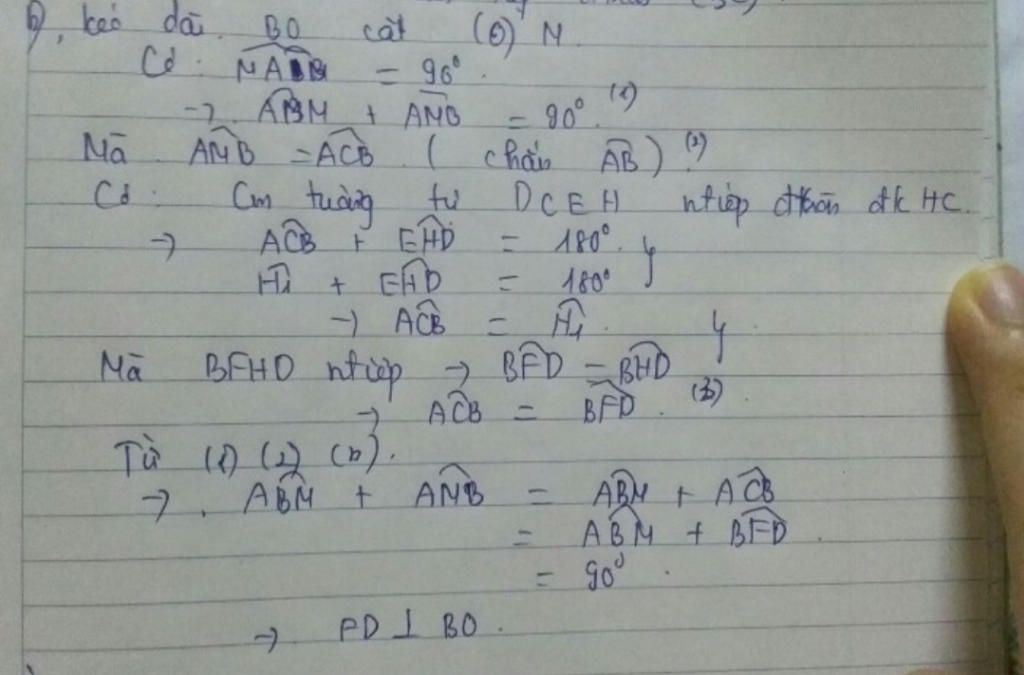 b), kéo dài BO cắt (O) M.
Có: MAB = 90°.
→ ABM + AMB = 90°. (1)
Mà AMB = ACB. ( chắn AB) (2)
Có: Cm tương tự DCEH ntiếp đtròn đk HC.
→ ACB + EHD = 180°. }
H₁ + EHD = 180°
→ ACB = H₁. }
Mà BFHD ntiếp → BFD = BHD
→ ACB = BFD. (3).
Từ (1) (2) (3).
→ . ABM + AMB = ABM + ACB
= ABM + BFD.
= 90°.
→ FD ⊥ BO.